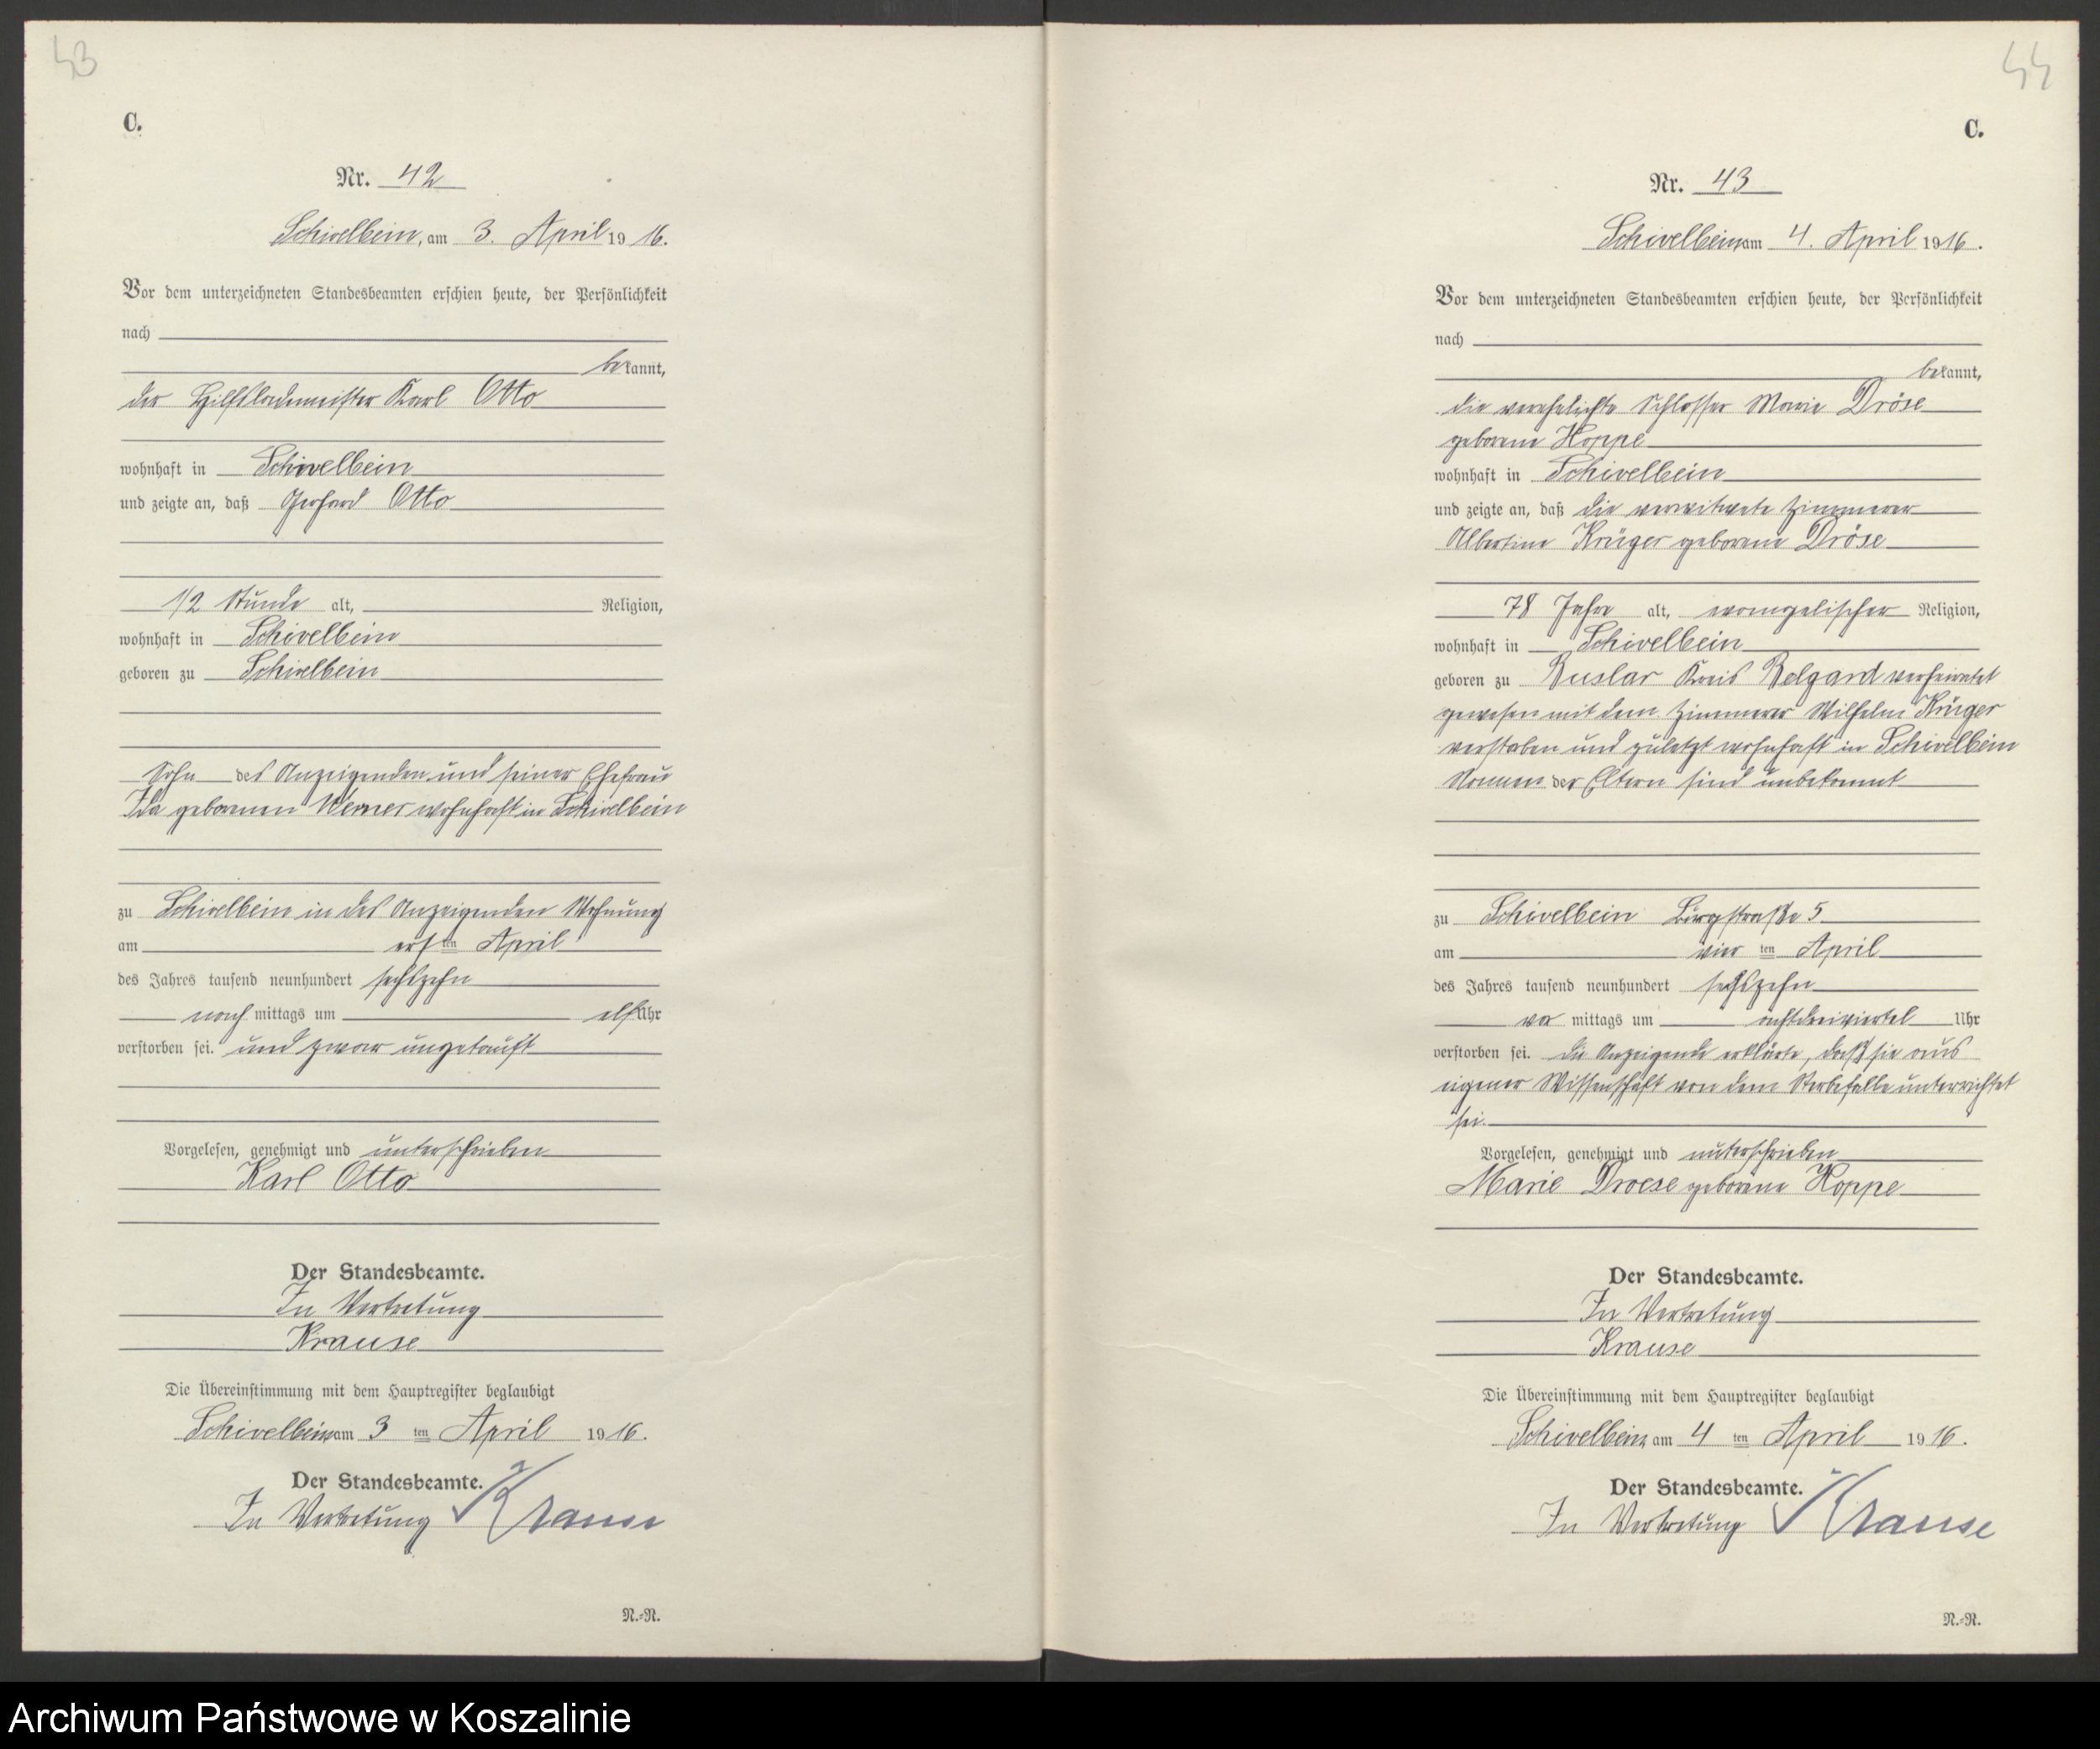 43
C.
Nr. 42
Schivelbein, am 3. April 1916.
Vor dem unterzeichneten Standesbeamten erschien heute, der Persönlichkeit
nach
bekannt,
der Hilfslademeister Karl Otto
wohnhaft in Schivelbein
und zeigte an, daß Gerhard Otto
1/2 Stunde alt, Religion,
wohnhaft in Schivelbein
geboren zu Schivelbein
Sohn des Anzeigenden und seiner Ehefrau
Ida geborenen Werner wohnhaft in Schivelbein
zu Schivelbein in des Anzeigenden Wohnung
am ersten April
des Jahres tausend neunhundert sechszehn
nach mittags um elf Uhr
verstorben sei. und zwar ungetauft
Vorgelesen, genehmigt und unterschrieben
Karl Otto
Der Standesbeamte.
In Vertretung
Krause
Die Übereinstimmung mit dem Hauptregister beglaubigt
Schivelbein, am 3 ten April 1916.
Der Standesbeamte.
In Vertretung Krause
N.=R.
44
C.
Nr. 43
Schivelbein, am 4. April 1916.
Vor dem unterzeichneten Standesbeamten erschien heute, der Persönlichkeit
nach
bekannt,
die verehelichte Schlosser Marie Dröse
geborene Hoppe
wohnhaft in Schivelbein
und zeigte an, daß die verwitwete Zimmerer
Albertine Krüger geborene Dröse
78 Jahre alt, evangelischer Religion,
wohnhaft in Schivelbein
geboren zu Buslar Kreis Belgard verheiratet
gewesen mit dem Zimmerer Wilhelm Krüger
verstorben und zuletzt wohnhaft in Schivelbein
Namen der Eltern sind unbekannt
zu Schivelbein Burgstraße 5
am vier ten April
des Jahres tausend neunhundert sechszehn
vor mittags um achtdreiviertel Uhr
verstorben sei. Die Anzeigende erklärte, daß sie aus
eigener Wissenschaft von dem Sterbefalle unterrichtet
sei.
Vorgelesen, genehmigt und unterschrieben
Marie Droese geborene Hoppe
Der Standesbeamte.
In Vertretung
Krause
Die Übereinstimmung mit dem Hauptregister beglaubigt
Schivelbein, am 4 ten April 1916.
Der Standesbeamte.
In Vertretung Krause
N.=R.
Archiwum Państwowe w Koszalinie